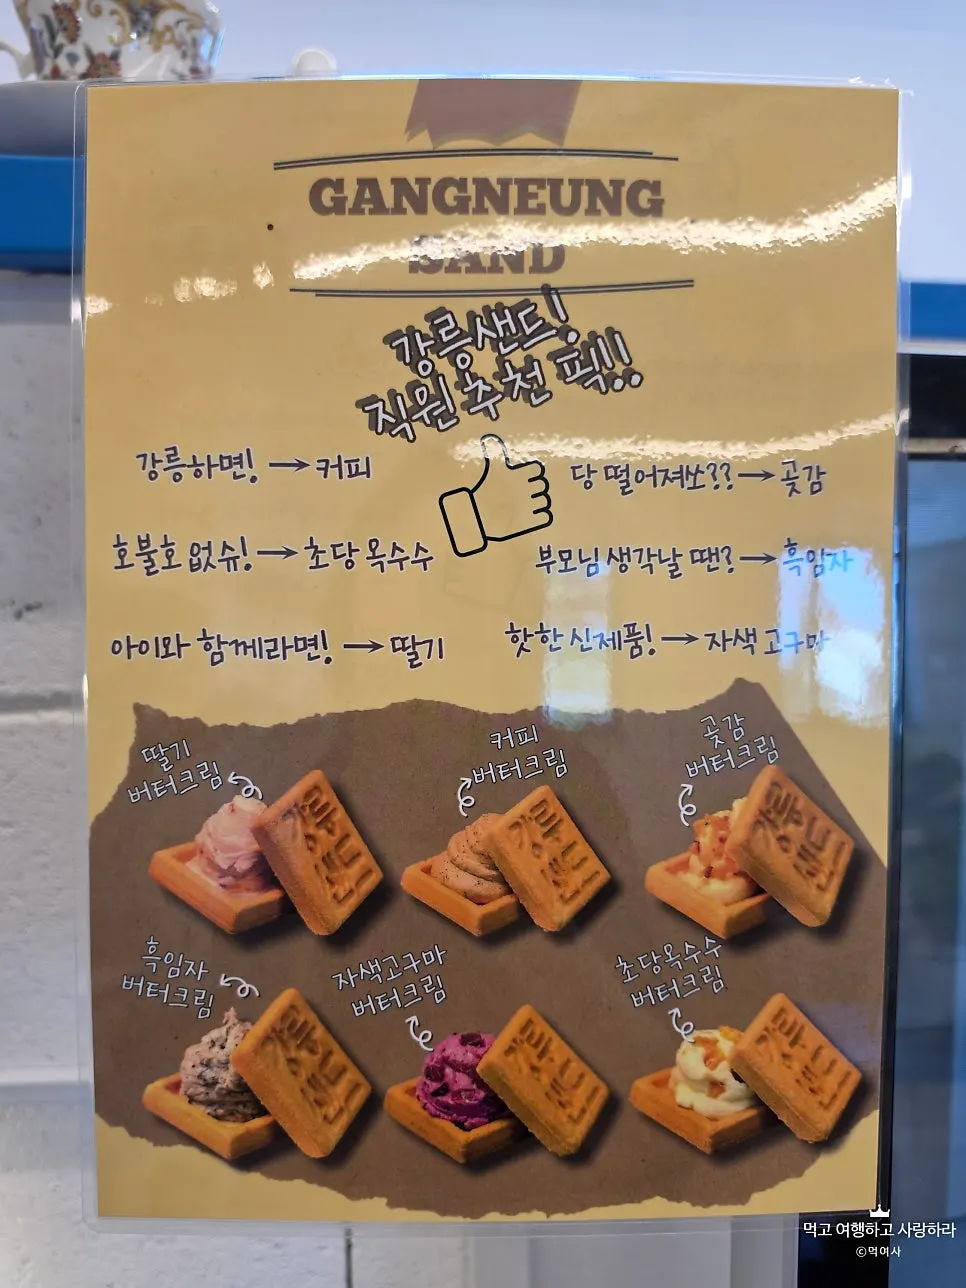 GANGNEUNG
SAND
강릉샌드!
직원 추천 픽!!
강릉하면! → 커피
당 떨어져쏘?? → 곶감
호불호 없슈! → 초당 옥수수
부모님 생각날 땐? → 흑임자
아이와 함께라면! → 딸기
핫한 신제품! → 자색 고구마
딸기
버터크림
커피
버터크림
곶감
버터크림
흑임자
버터크림
자색고구마
버터크림
초당옥수수
버터크림
먹고 여행하고 사랑하라
©먹여사